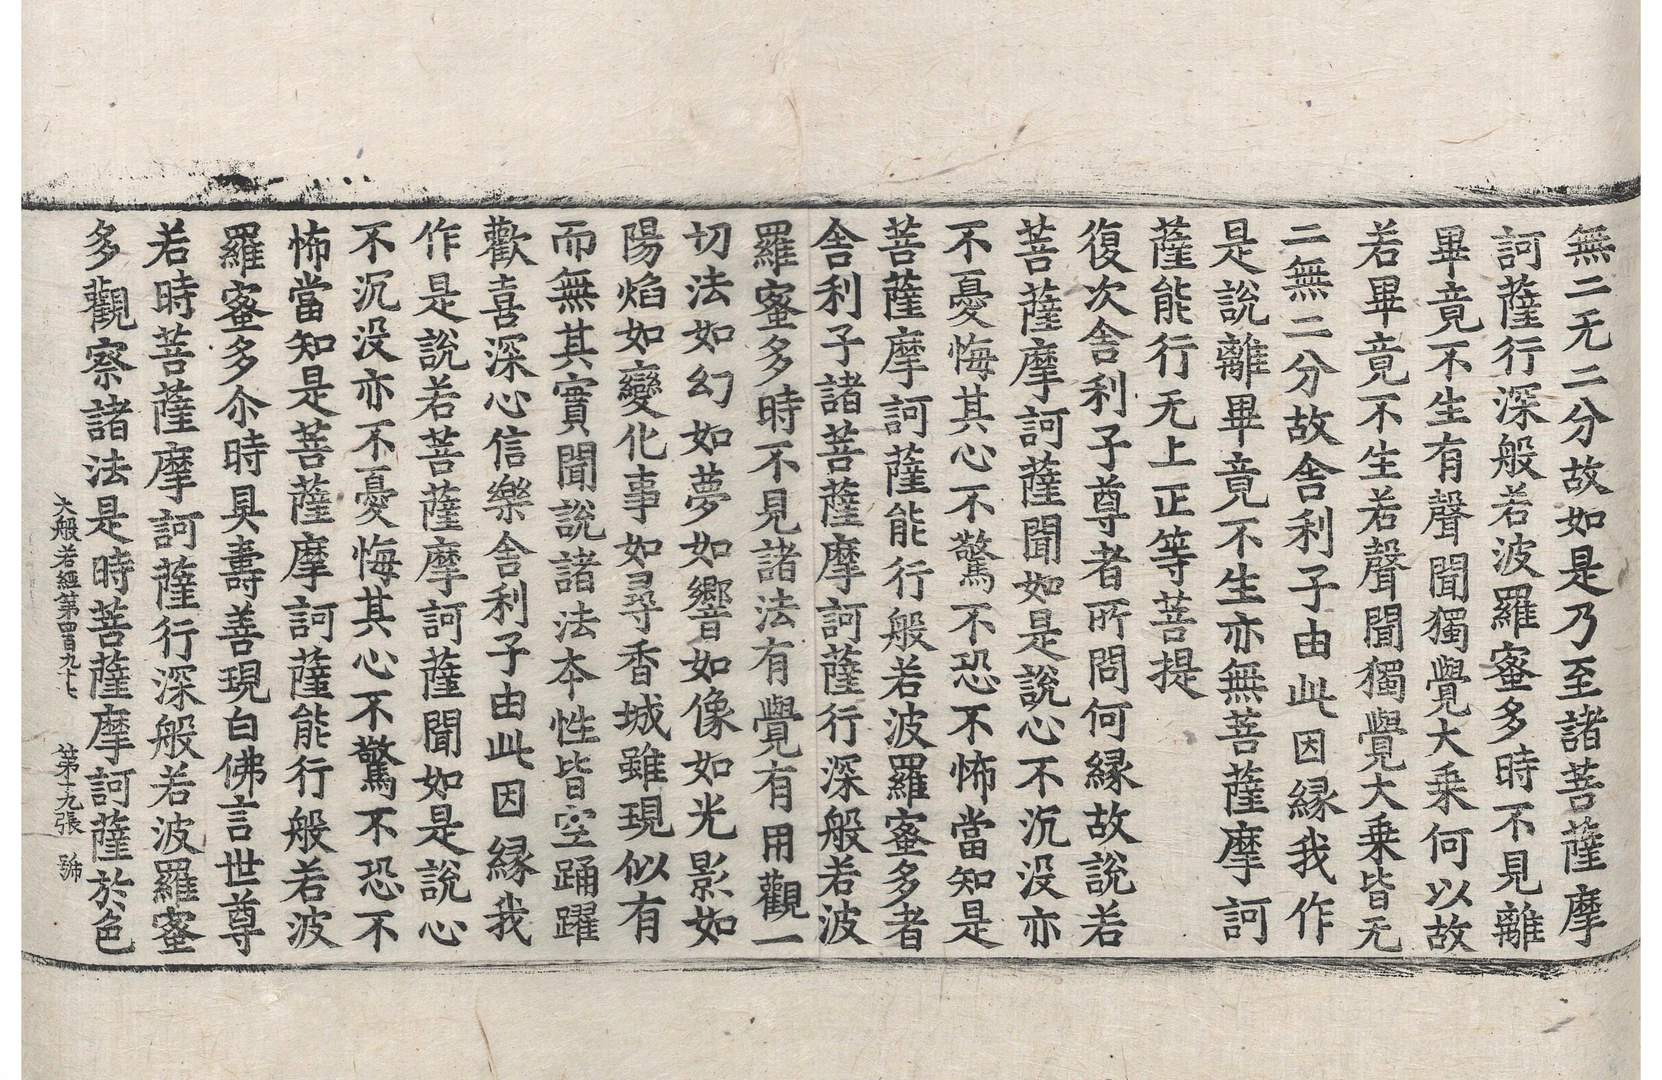 無二无二分故如是乃至諸菩薩摩
訶薩行深般若波羅蜜多時不見離
畢竟不生有聲聞獨覺大乘何以故
若畢竟不生若聲聞獨覺大乘皆无
二無二分故舍利子由此因縁我作
是說離畢竟不生亦無菩薩摩訶
薩能行无上正等菩提
復次舍利子尊者所問何縁故說若
菩薩摩訶薩聞如是說心不沉没亦
不憂悔其心不驚不恐不怖當知是
菩薩摩訶薩能行般若波羅蜜多者
舍利子諸菩薩摩訶薩行深般若波
羅蜜多時不見諸法有覺有用觀一
切法如幻如夢如響如像如光影如
陽焰如變化事如尋香城雖現似有
而無其實聞說諸法本性皆空踊躍
歡喜深心信樂舍利子由此因縁我
作是說若菩薩摩訶薩聞如是說心
不沉没亦不憂悔其心不驚不恐不
怖當知是菩薩摩訶薩能行般若波
羅蜜多尒時具壽善現白佛言世尊
若時菩薩摩訶薩行深般若波羅蜜
多觀察諸法是時菩薩摩訶薩於色
大般若經第四百九十七 第十九張 號